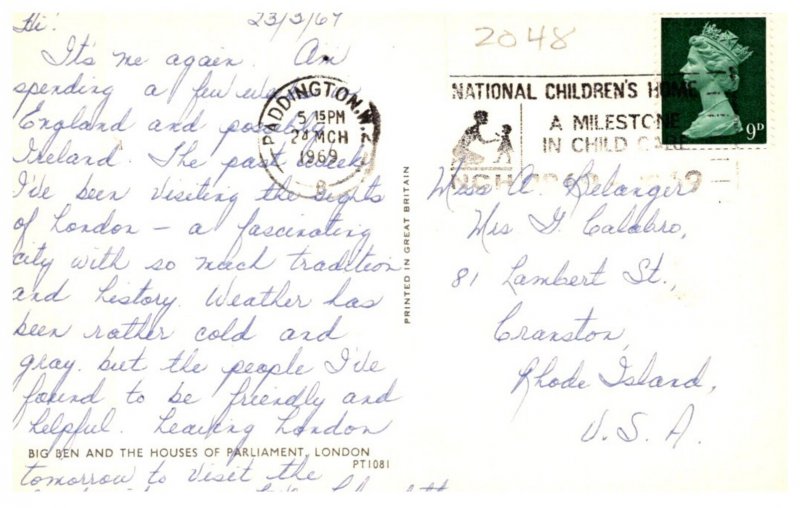 Hi!
23/3/69
It's me again. Am
spending a few
England and
Ireland. The past week
I've been visiting the sights
of London – a fascinating
city with so much tradition
and history. Weather has
been rather cold and
gray. but the people I've
found to be friendly and
helpful. Leaving London
BIG BEN AND THE HOUSES OF PARLIAMENT, LONDON
PT1081
tomorrow to visit the
PRINTED IN GREAT BRITAIN
2048
PADDINGTON. W.2
5 15PM
24 MCH
1969
NATIONAL CHILDREN'S HOME
A MILESTONE
IN CHILD CARE
NCH 1969
9D
Miss A. Belanger
Mrs G. Calabro,
81 Lambert St.,
Cranston,
Rhode Island,
U.S.A.